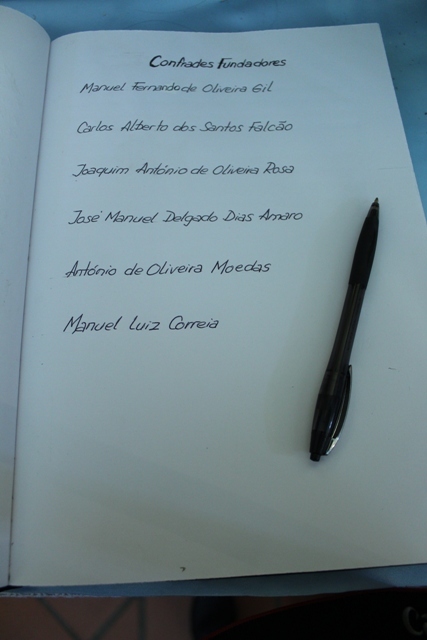 Confrades Fundadores
Manuel Fernando de Oliveira Gil
Carlos Alberto dos Santos Falcão
Joaquim António de Oliveira Rosa
José Manuel Delgado Dias Amaro
António de Oliveira Moedas
Manuel Luiz Correia